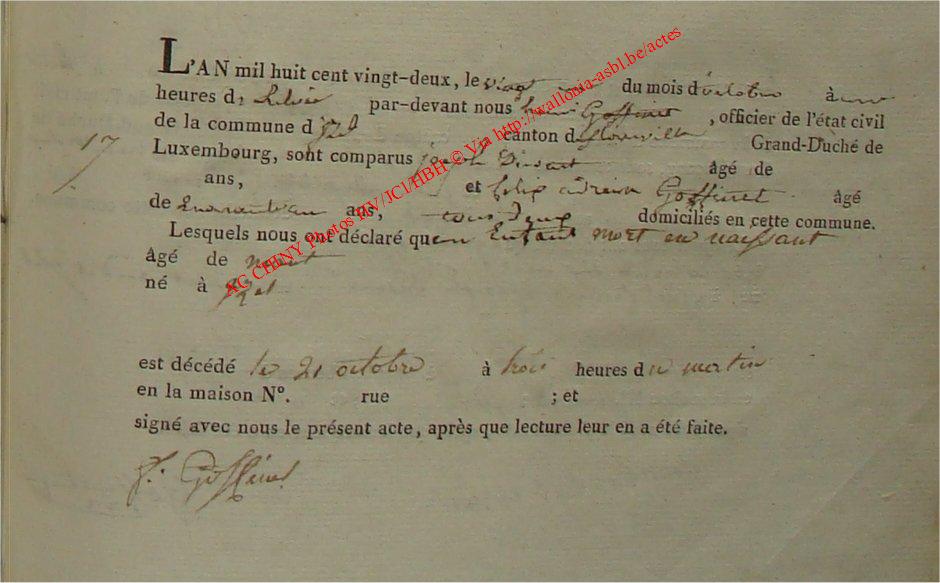 L'AN mil huit cent vingt-deux, le vingt du mois d'octobre à
heures d par-devant nous Goffinet, officier de l'état civil
de la commune d'Izel canton de florenville Grand-Duché de
17
Luxembourg, sont comparus joseph âgé de
ans, et Goffinet âgé
de ans, tous deux domiciliés en cette commune.
Lesquels nous ont déclaré que un Enfant mort en naissant
âgé de
né à Izel
est décédé le 21 octobre à trois heures du mertin
en la maison N°. rue ; et
signé avec nous le présent acte, après que lecture leur en a été faite.
Goffinet
AC CHINY Photos HV/JCl/HBH © Via http://wallonia-asbl.be/actes